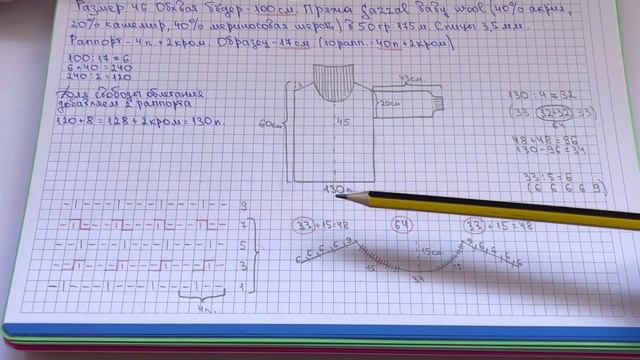 Размер 46 Обхват бёдер - 100 см. Пряжа Gazzal Baby wool (40% акрил,
20% кашемир, 40% мериносовая шерсть) в 50 гр. 175 м. Спицы 3,5 мм.
Раппорт - 4п. + 2кром. Образец - 17 см (10 рапп. - 40п + 2кром)
100 : 17 = 6
6 × 40 = 240
240 : 2 = 120
Для свободы облегания
добавляем 2 раппорта
120 + 8 = 128 + 2кром = 130 п.
60см
45
43см
20см
130п.
130 : 4 = 32
(33 32+32 33)
64
48 + 48 = 96
130 - 96 = 34
33 : 5 = 6
(6 6 6 6 9)
9
7
5
3
1
4п.
33 + 15 = 48
64
33 + 15 = 48
6 6 6 6 9
9 6 6 6 6
15
15см
15
34